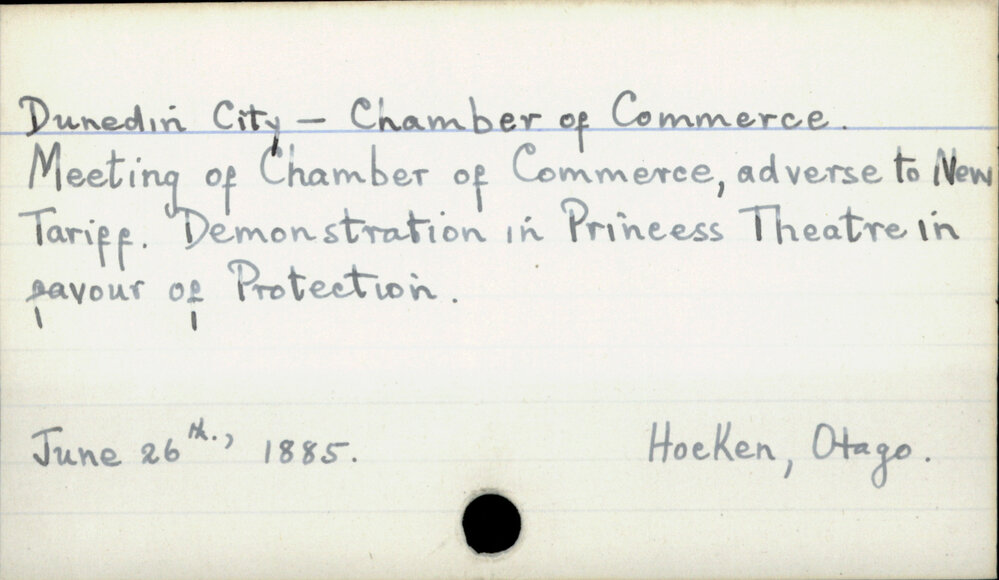 Dunedin City – Chamber of Commerce.
Meeting of Chamber of Commerce, adverse to New
Tariff. Demonstration in Princess Theatre in
favour of Protection.
June 26th., 1885.
Hocken, Otago.